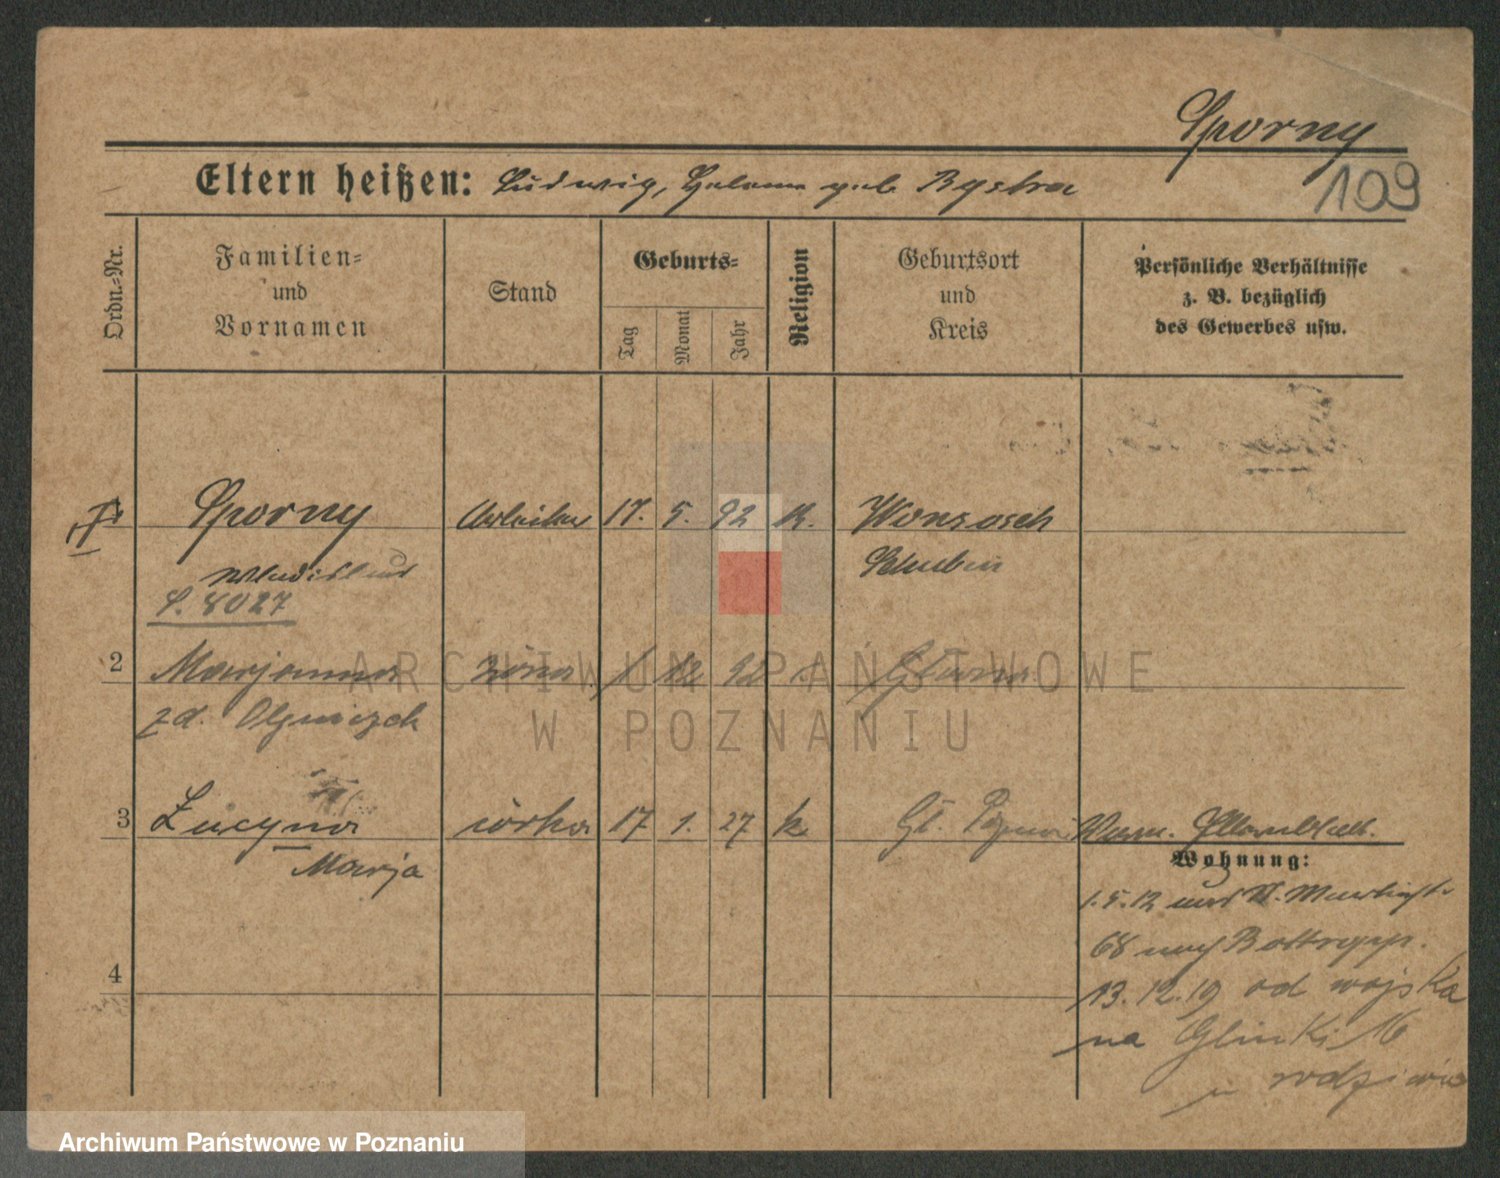 Sporny
109
Eltern heißen: Ludwig, Helena geb. Bystra
Ordn.-Nr.
Familien-
und
Vornamen
Stand
Geburts-
Tag
Monat
Jahr
Religion
Geburtsort
und
Kreis
Persönliche Verhältnisse
z. B. bezüglich
des Gewerbes usw.
Sporny Arbeiter 17. 5. 92 k. Wonsosch
Wladislaus Schubin
S. 8027
2 Marjanna żona 12 92 Głuwna
zd.
3 Lucyna córka 17 1. 27 k. Gł.
Marja
Wohnung:
1.5.12
68 nach Bottropp.
4
13.12.19 od wojska
na Glinki 16
u rodziców
ARCHIWUM PAŃSTWOWE
W POZNANIU
Archiwum Państwowe w Poznaniu